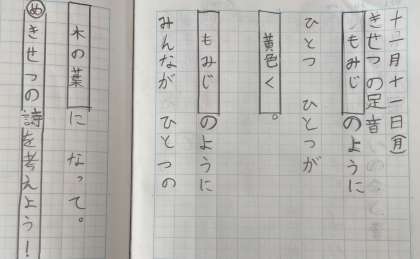 十一月十一日(月)
きせつの足音
もみじのように
ひとつ ひとつが
黄色く。
もみじのように
みんなが ひとつの
木の葉に なって。
め きせつの詩を考えよう!